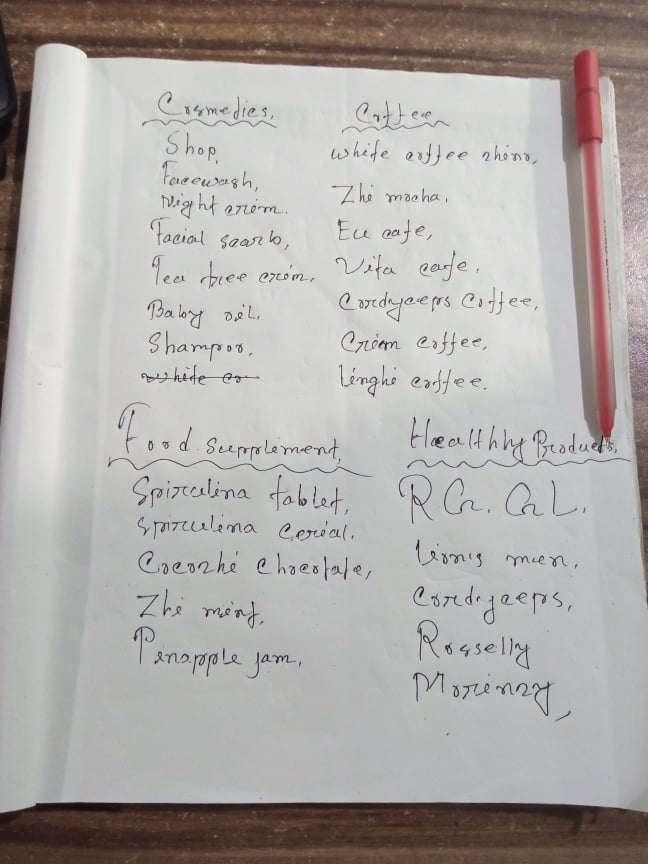 Cosmedies,
Shop,
Facewash,
Night criem.
Facial scarb,
Tea tree criem,
Baby oil,
Shampoo,
White co
Coffee
White coffee zhino,
Zhi mocha,
Eu cafe,
Vita cafe,
Cordyceps Coffee,
Criem coffee,
Linghi coffee.
Food Supplement,
Spirculina tablet,
Spirculina Cerial,
Cocozhi Chocotate,
Zhi mint,
Pinapple jam,
Healthly Products,
RG. GL.
Lionis mien,
Cordyceps,
Rosselly
Morinzy,